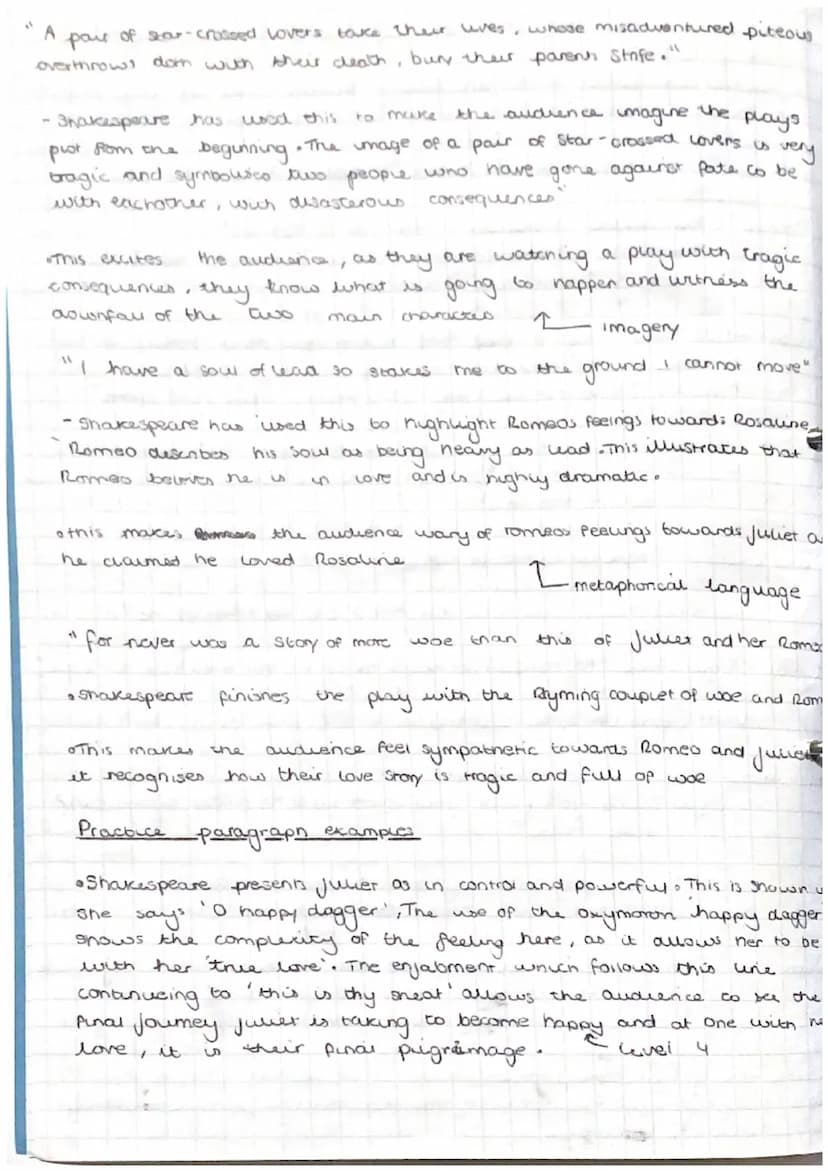 "A pair of star-crossed lovers take their lives, whose misadventured piteous
overthrows dom with their death, bury their parents strife."
- Shakespeare has used this to make the audience imagine the plays
plot from the beginning. The image of a pair of star-crossed lovers is very
tragic and symbolises two people who have gone against fate to be
with eachother, with disasterous consequences"
• This excites the audience, as they are watching a play with tragic
consequences, they know what is going to happen and witness the
downfall of the two main characters
imagery
"I have a soul of lead so stakes me to the ground I cannot move"
- Shakespeare has used this to highlight Romeos feelings towards Rosaline
Romeo describes his soul as being heavy as lead. This illustrates that
Romeo believes he is in love and is highly dramatic.
• this makes the audience wary of romeos feelings towards Juliet a
he claimed he loved Rosaline
metaphorical language
"for never was a story of more woe than this of Juliet and her Rome
• Shakespeare finishes the play with the Rhyming couplet of woe and Rom
• This makes the audience feel sympathetic towards Romeo and Juliet
it recognises how their love story is tragic and full of woe
Practice paragraph examples
• Shakespeare presents Juliet as in control and powerful. This is shown
she says 'O happy dagger', The use of the oxymoron 'happy dagger
shows the complexity of the feeling here, as it allows her to be
with her 'true love'. The enjabment which follows this line
continueing to 'this is thy sheat' allows the audience to see the
final journey Juliet is taking to become happy and at one with
love, it is their final pilgrimage.
level 4